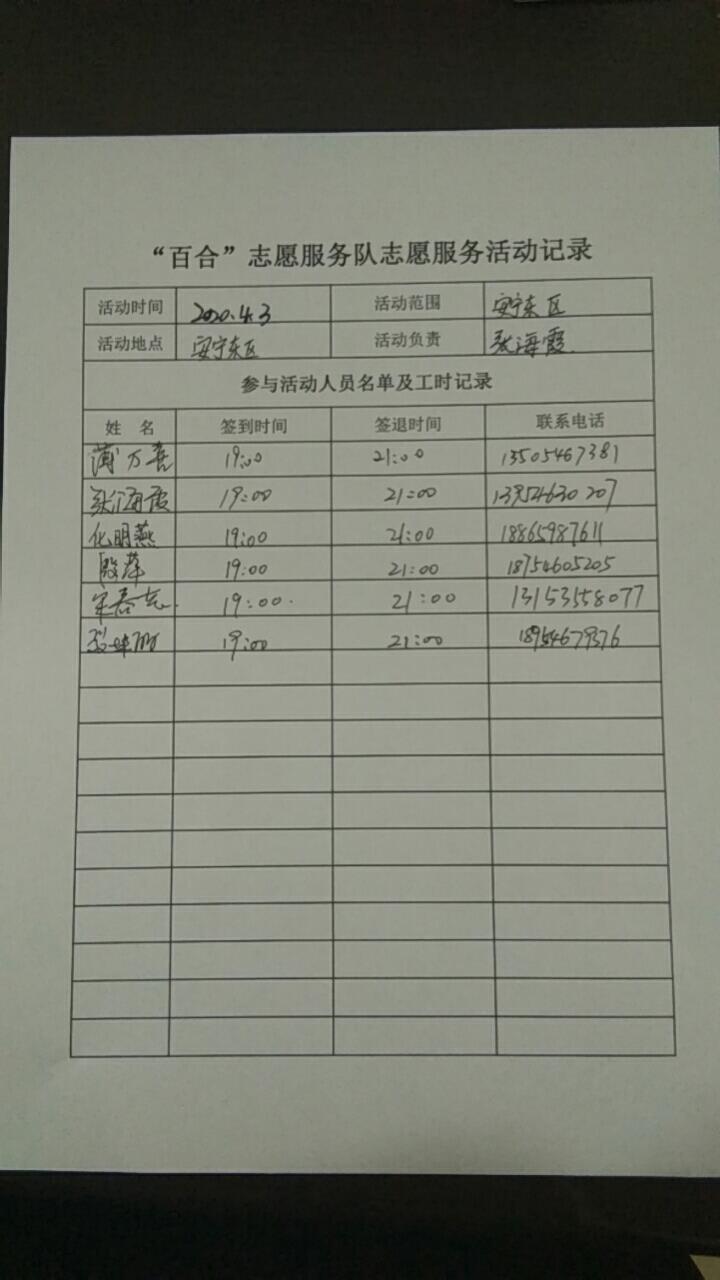 “百合”志愿服务队志愿服务活动记录
活动时间 2020.4.3 活动范围 安宁东区
活动地点 安宁东区 活动负责 张海霞
参与活动人员名单及工时记录
姓 名 签到时间 签退时间 联系电话
蒲万喜 19:00 21:00 13505467381
张海霞 19:00 21:00 13954630207
化明燕 19:00 21:00 18865987611
殷萍 19:00 21:00 18754605205
19:00 21:00 13153558077
19:00 21:00 18954679376